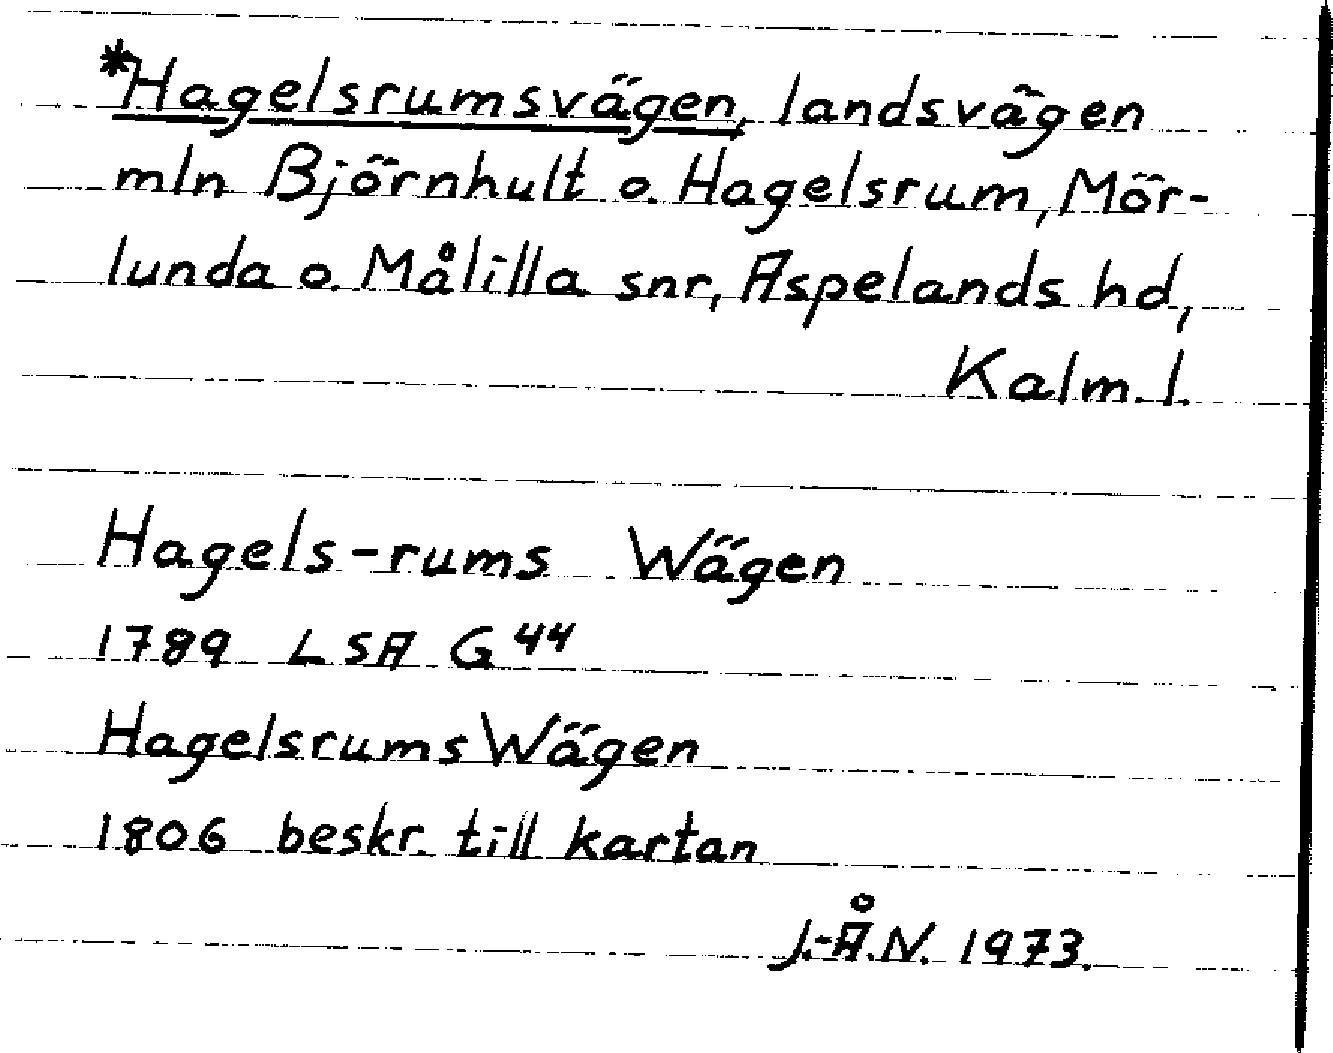 *Hagelsrumsvägen, landsvägen
mln Björnhult o. Hagelsrum, Mör-
lunda o. Målilla snr, Aspelands hd,
Kalm. l.
Hagels-rums Wägen
1789 LSA G 44
Hagelsrums Wägen
1806 beskr. till kartan
J.-Å.N. 1973.